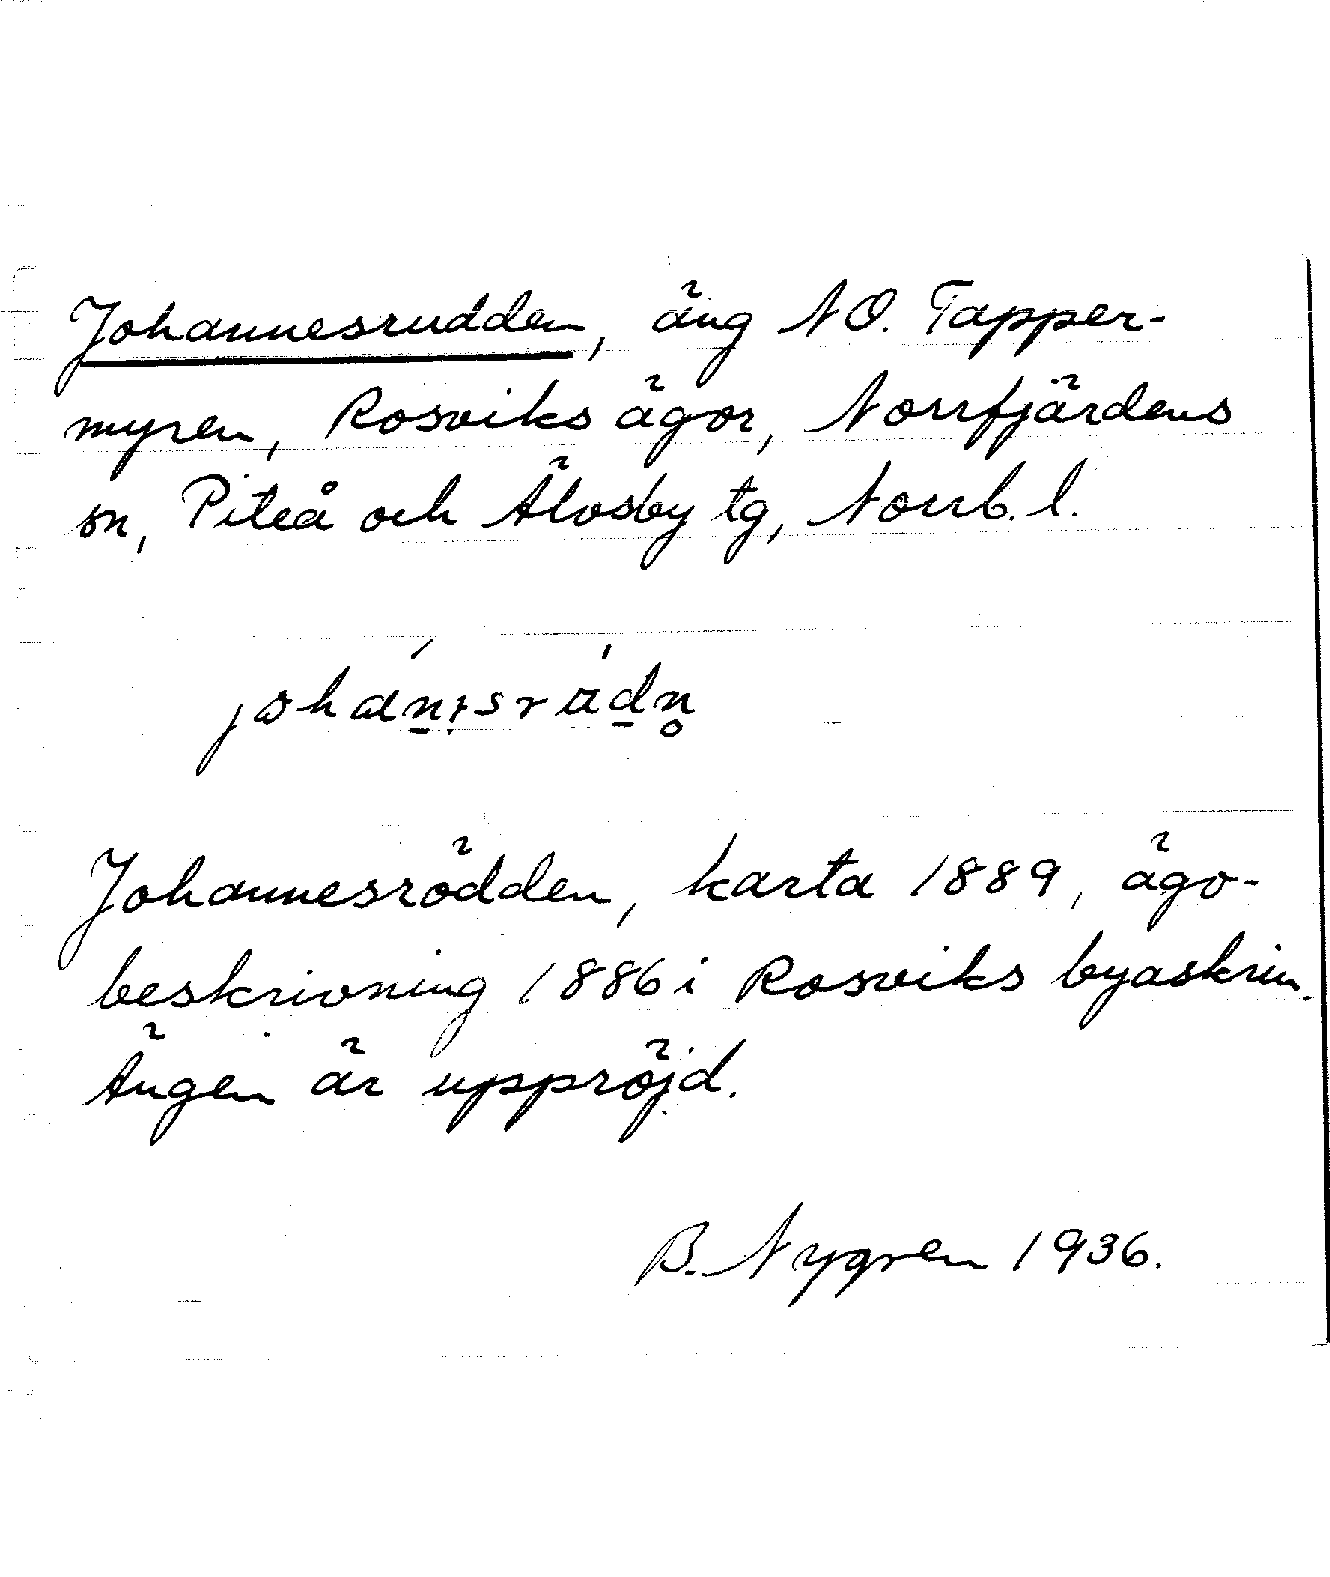 Johannesrudden, äng NO. Tapper-
myren, Rosviks ägor, Norrfjärdens
sn, Piteå och Älvsby tg, Norrb. l.
Johannesrödden, karta 1889, ägo-
beskrivning 1886 i Rosviks byaskrin.
Ängen är uppröjd.
B. Nygren 1936.